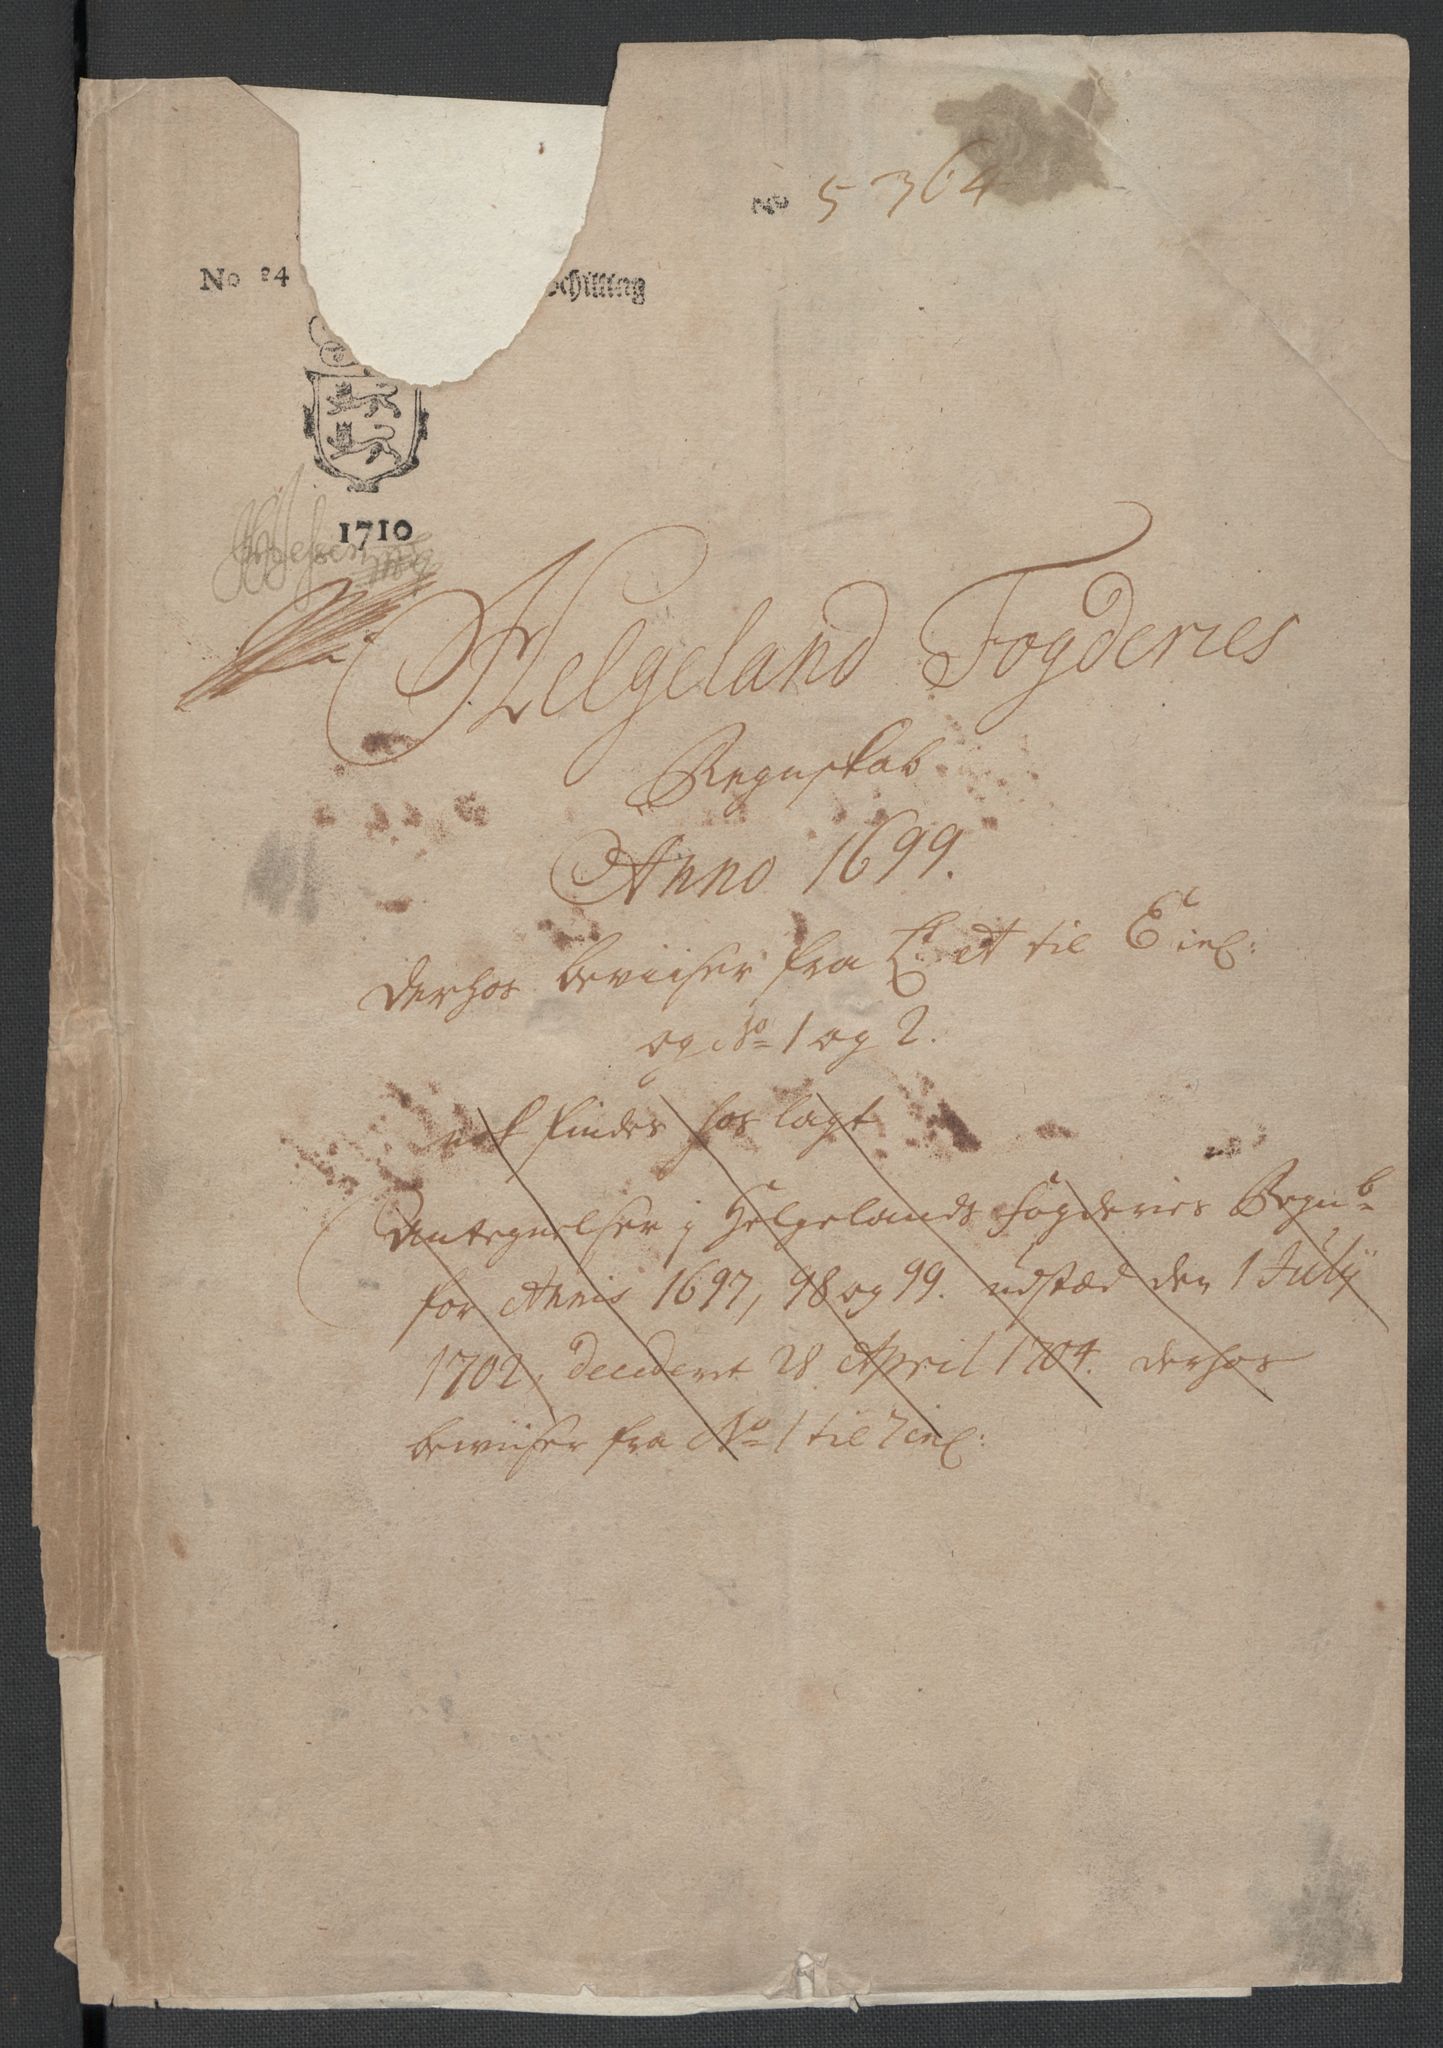 No 5364
No 24 Schilling
1710
Helgeland Fogderies
Regnskab
Anno 1699.
derhos beviiser fra L: A til E incl:
og No 1 og 2.
nok findes hos lagt
Antegnelser j Helgelands fogderies Regnb
for Annis 1697, 98 og 99. udstæd den 1 July
1702, decideret 28 April 1704. derhos
beviiser fra No 1 til 7 incl: